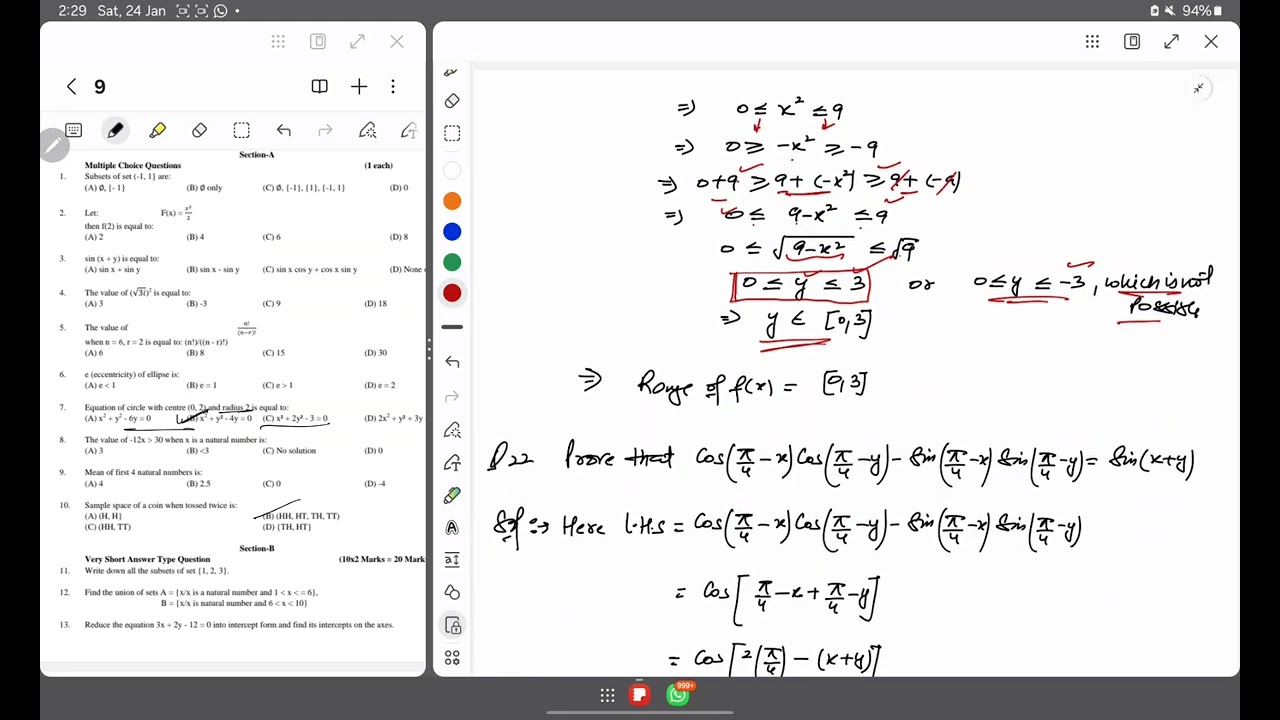 2:29 Sat, 24 Jan
94%
9
Section-A
Multiple Choice Questions (1 each)
1. Subsets of set (-1, 1} are:
(A) ∅, {- 1} (B) ∅ only (C) ∅, {-1}, {1}, {-1, 1} (D) 0
2. Let: F(x) = x²/2
then f(2) is equal to:
(A) 2 (B) 4 (C) 6 (D) 8
3. sin (x + y) is equal to:
(A) sin x + sin y (B) sin x - sin y (C) sin x cos y + cos x sin y (D) None o
4. The value of (√3i)² is equal to:
(A) 3 (B) -3 (C) 9 (D) 18
5. The value of n!/(n−r)!
when n = 6, r = 2 is equal to: (n!)/((n - r)!)
(A) 6 (B) 8 (C) 15 (D) 30
6. e (eccentricity) of ellipse is:
(A) e < 1 (B) e = 1 (C) e > 1 (D) e = 2
7. Equation of circle with centre (0, 2) and radius 2 is equal to:
(A) x² + y² - 6y = 0 (B) x² + y² - 4y = 0 (C) x² + 2y² - 3 = 0 (D) 2x² + y² + 3y
8. The value of -12x > 30 when x is a natural number is:
(A) 3 (B) <3 (C) No solution (D) 0
9. Mean of first 4 natural numbers is:
(A) 4 (B) 2.5 (C) 0 (D) -4
10. Sample space of a coin when tossed twice is:
(A) (H, H} (B) (HH, HT, TH, TT)
(C) (HH, TT) (D) {TH, HT}
Section-B
Very Short Answer Type Question (10x2 Marks = 20 Mark
11. Write down all the subsets of set {1, 2, 3}.
12. Find the union of sets A = {x/x is a natural number and 1 < x < = 6},
B = {x/x is natural number and 6 < x < 10}
13. Reduce the equation 3x + 2y - 12 = 0 into intercept form and find its intercepts on the axes.
⇒ 0 ≤ x² ≤ 9
⇒ 0 ≥ -x² ≥ -9
⇒ 0+9 ≥ 9+(-x²) ≥ 9+(-9)
⇒ 0 ≤ 9-x² ≤ 9
0 ≤ √(9-x²) ≤ √9
0 ≤ y ≤ 3 or 0 ≤ y ≤ -3, which is not possible
⇒ y ∈ [0,3]
⇒ Range of f(x) = [0,3]
Q22 Prove that Cos(π/4-x)Cos(π/4-y)-Sin(π/4-x)Sin(π/4-y)=Sin(x+y)
Sol ⇒ Here L.H.S = Cos(π/4-x)Cos(π/4-y)-Sin(π/4-x)Sin(π/4-y)
= Cos[π/4-x+π/4-y]
= Cos[2(π/4)-(x+y)]
999+